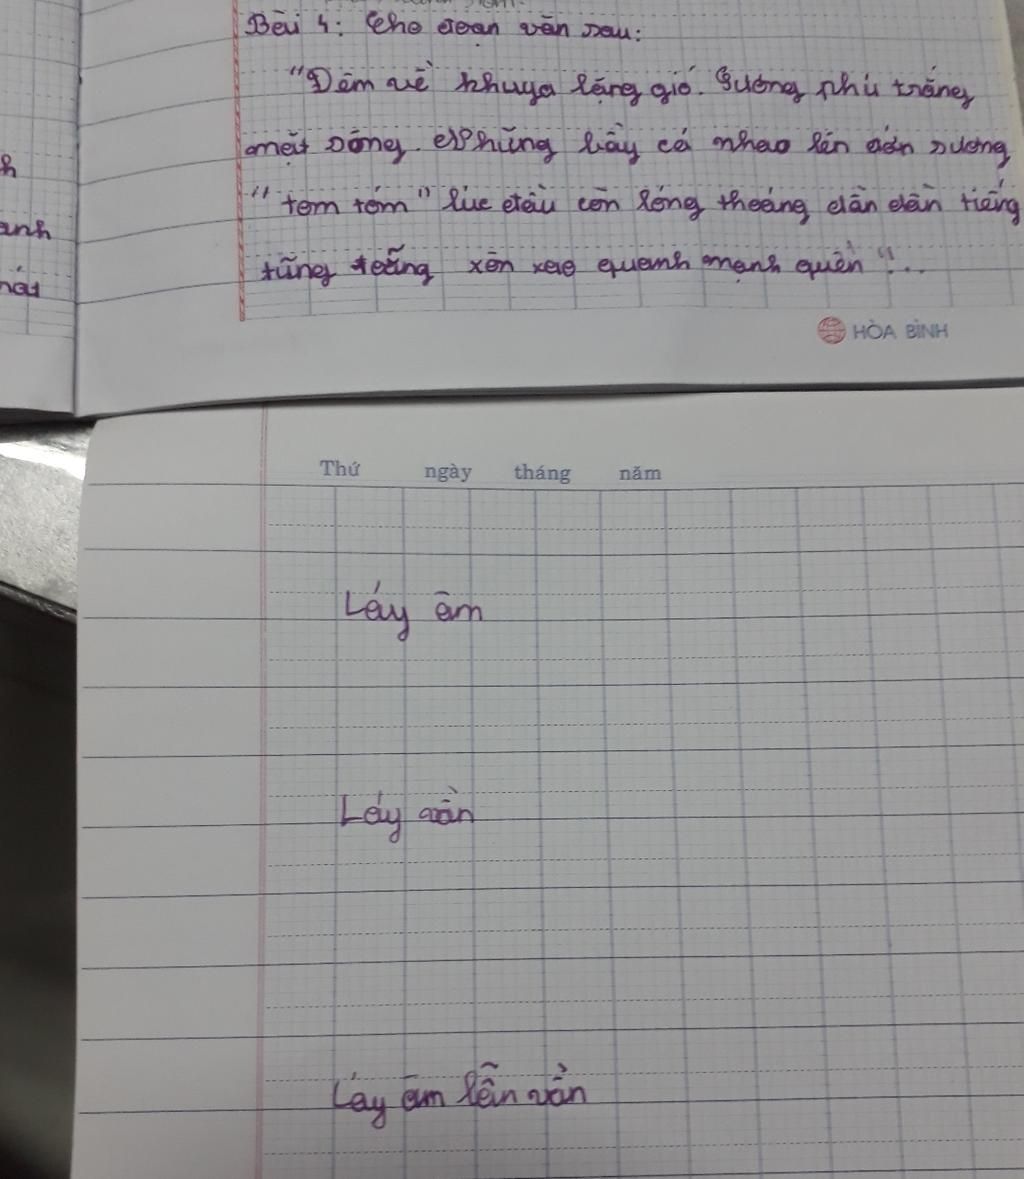 Bài 4: Cho đoạn văn sau:
"Đêm về khuya lặng gió. Sương phủ trắng
mặt sông. Những bầy cá nhao lên đớn sương
"tom tóm" lúc đầu còn lóng thoáng dần dần tiếng
h
anh
tũng toẵng xôn xao quanh mạnh quền "...
HÒA BÌNH
Thứ ngày tháng năm
Láy âm
Láy vần
Láy âm lẫn vần